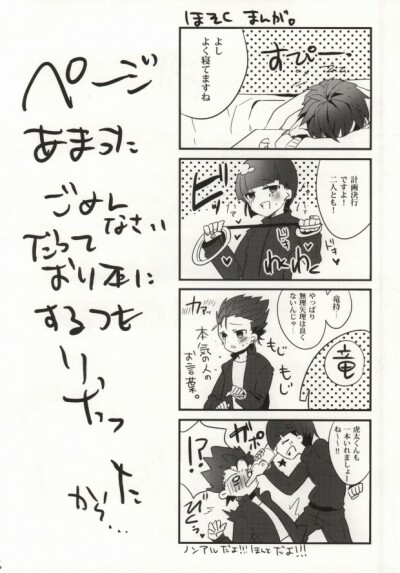 ページ
あまった
ごめん
なさい
だって
おり本に
するつも
りだった
から…
ほそく まんが。
よし
よく寝てますね
すぴー…
計画決行
ですよ！
二人とも！
ビシッ
ドキドキ
わく
わく
竜持…
やっぱり
無理矢理は良く
ないんじゃ…
カァッ
もじ
もじ
本気の人の
お言葉。
竜
虎太くんも
一本いれましょー
ね〜〜!!
ガポ
!?
ビクッ
ノンアルだよ!!!ほんとだよ!!!